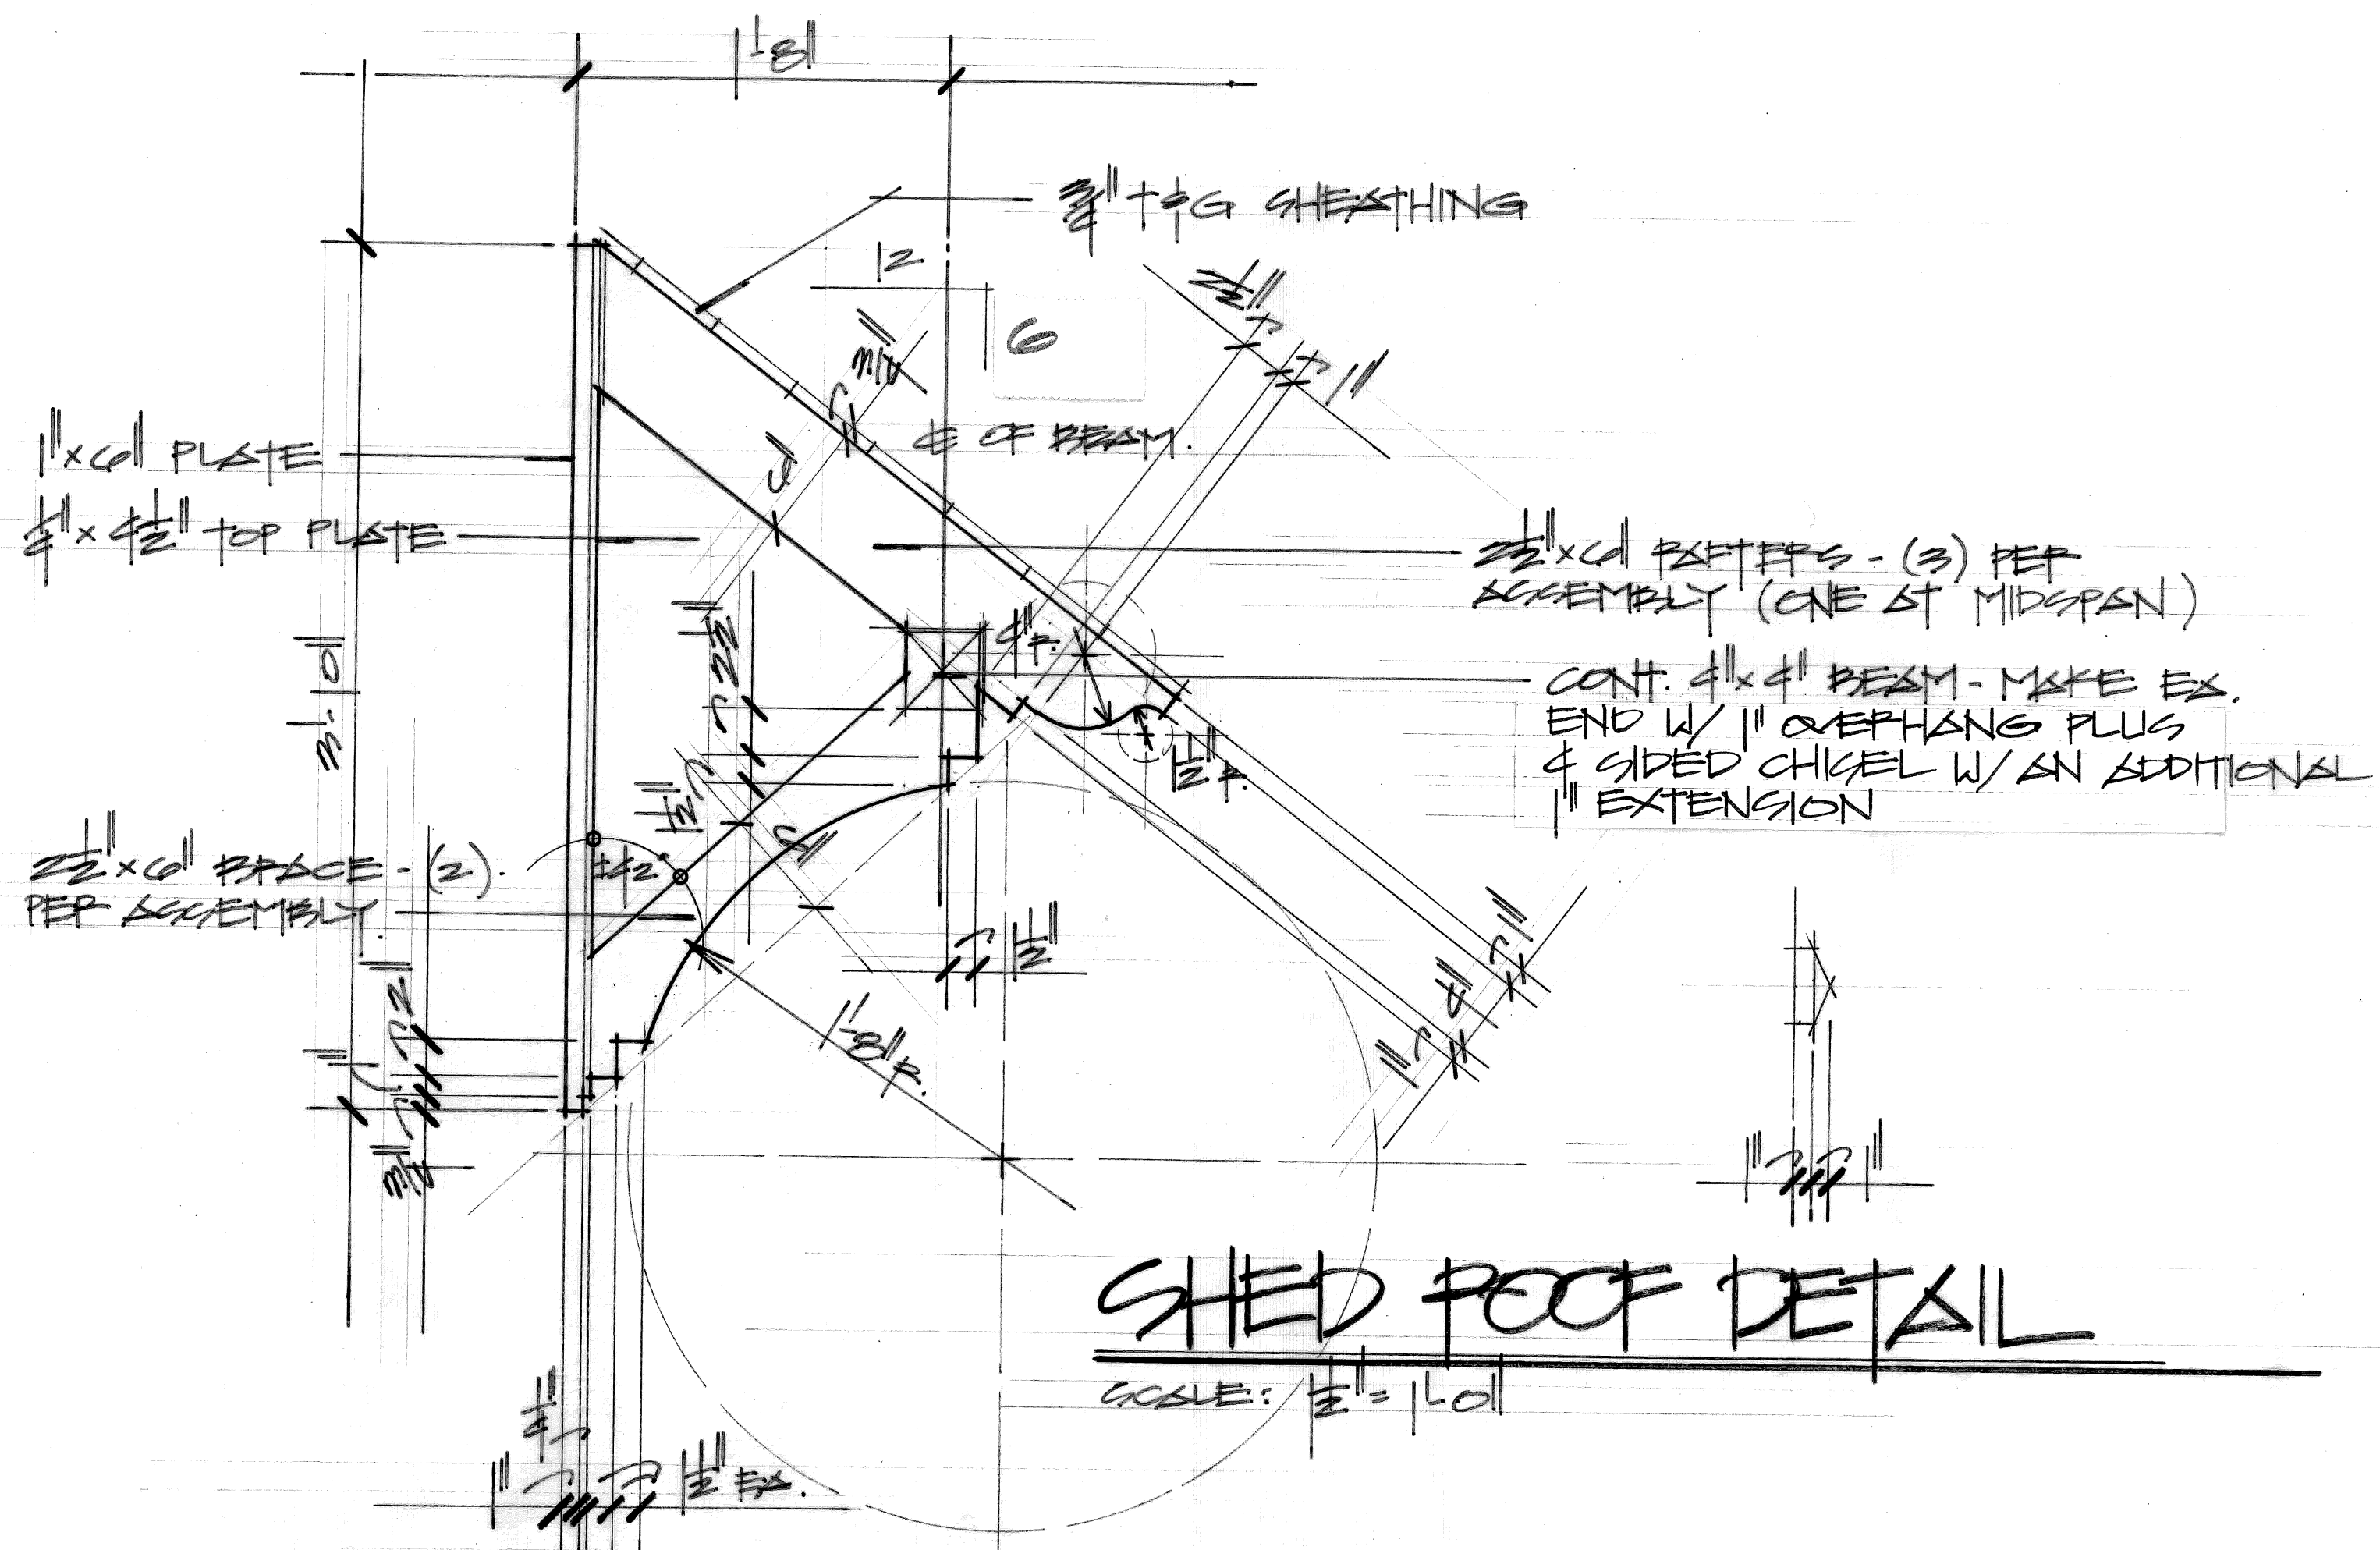 1'-8"
3/4" T&G SHEATHING
12
6
2 1/2"
1"
3/4"
6"
℄ OF BEAM.
1"x6" PLATE
1/4"x4 1/2" TOP PLATE
2 1/2"x6" RAFTERS - (3) PER
ASSEMBLY (ONE AT MIDSPAN)
4" R.
CONT. 4"x4" BEAM - MAKE EA.
END W/ 1" OVERHANG PLUS
4 SIDED CHISEL W/ AN ADDITIONAL
1" EXTENSION
1 1/2" R.
3'-0"
2 1/2"x6" BRACE - (2).
PER ASSEMBLY.
±42°
1 1/2"
1"
1"
1'-8" R.
2"
1"
3/4"
1"
1"
SHED ROOF DETAIL
SCALE: 1 1/2" = 1'-0"
1/4"
1"
1 1/2" EA.